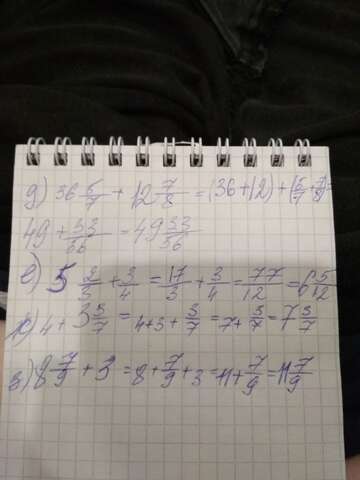 д) 36 5/7 + 12 7/8 = (36+12)+(5/7+7/8)=
49 + 33/56 = 49 33/56
е) 5 2/3 + 3/4 = 17/3 + 3/4 = 77/12 = 6 5/12
ж) 4 + 3 5/7 = 4+3+5/7 = 7+5/7 = 7 5/7
з) 8 7/9 + 3 = 8 + 7/9 + 3 = 11 + 7/9 = 11 7/9